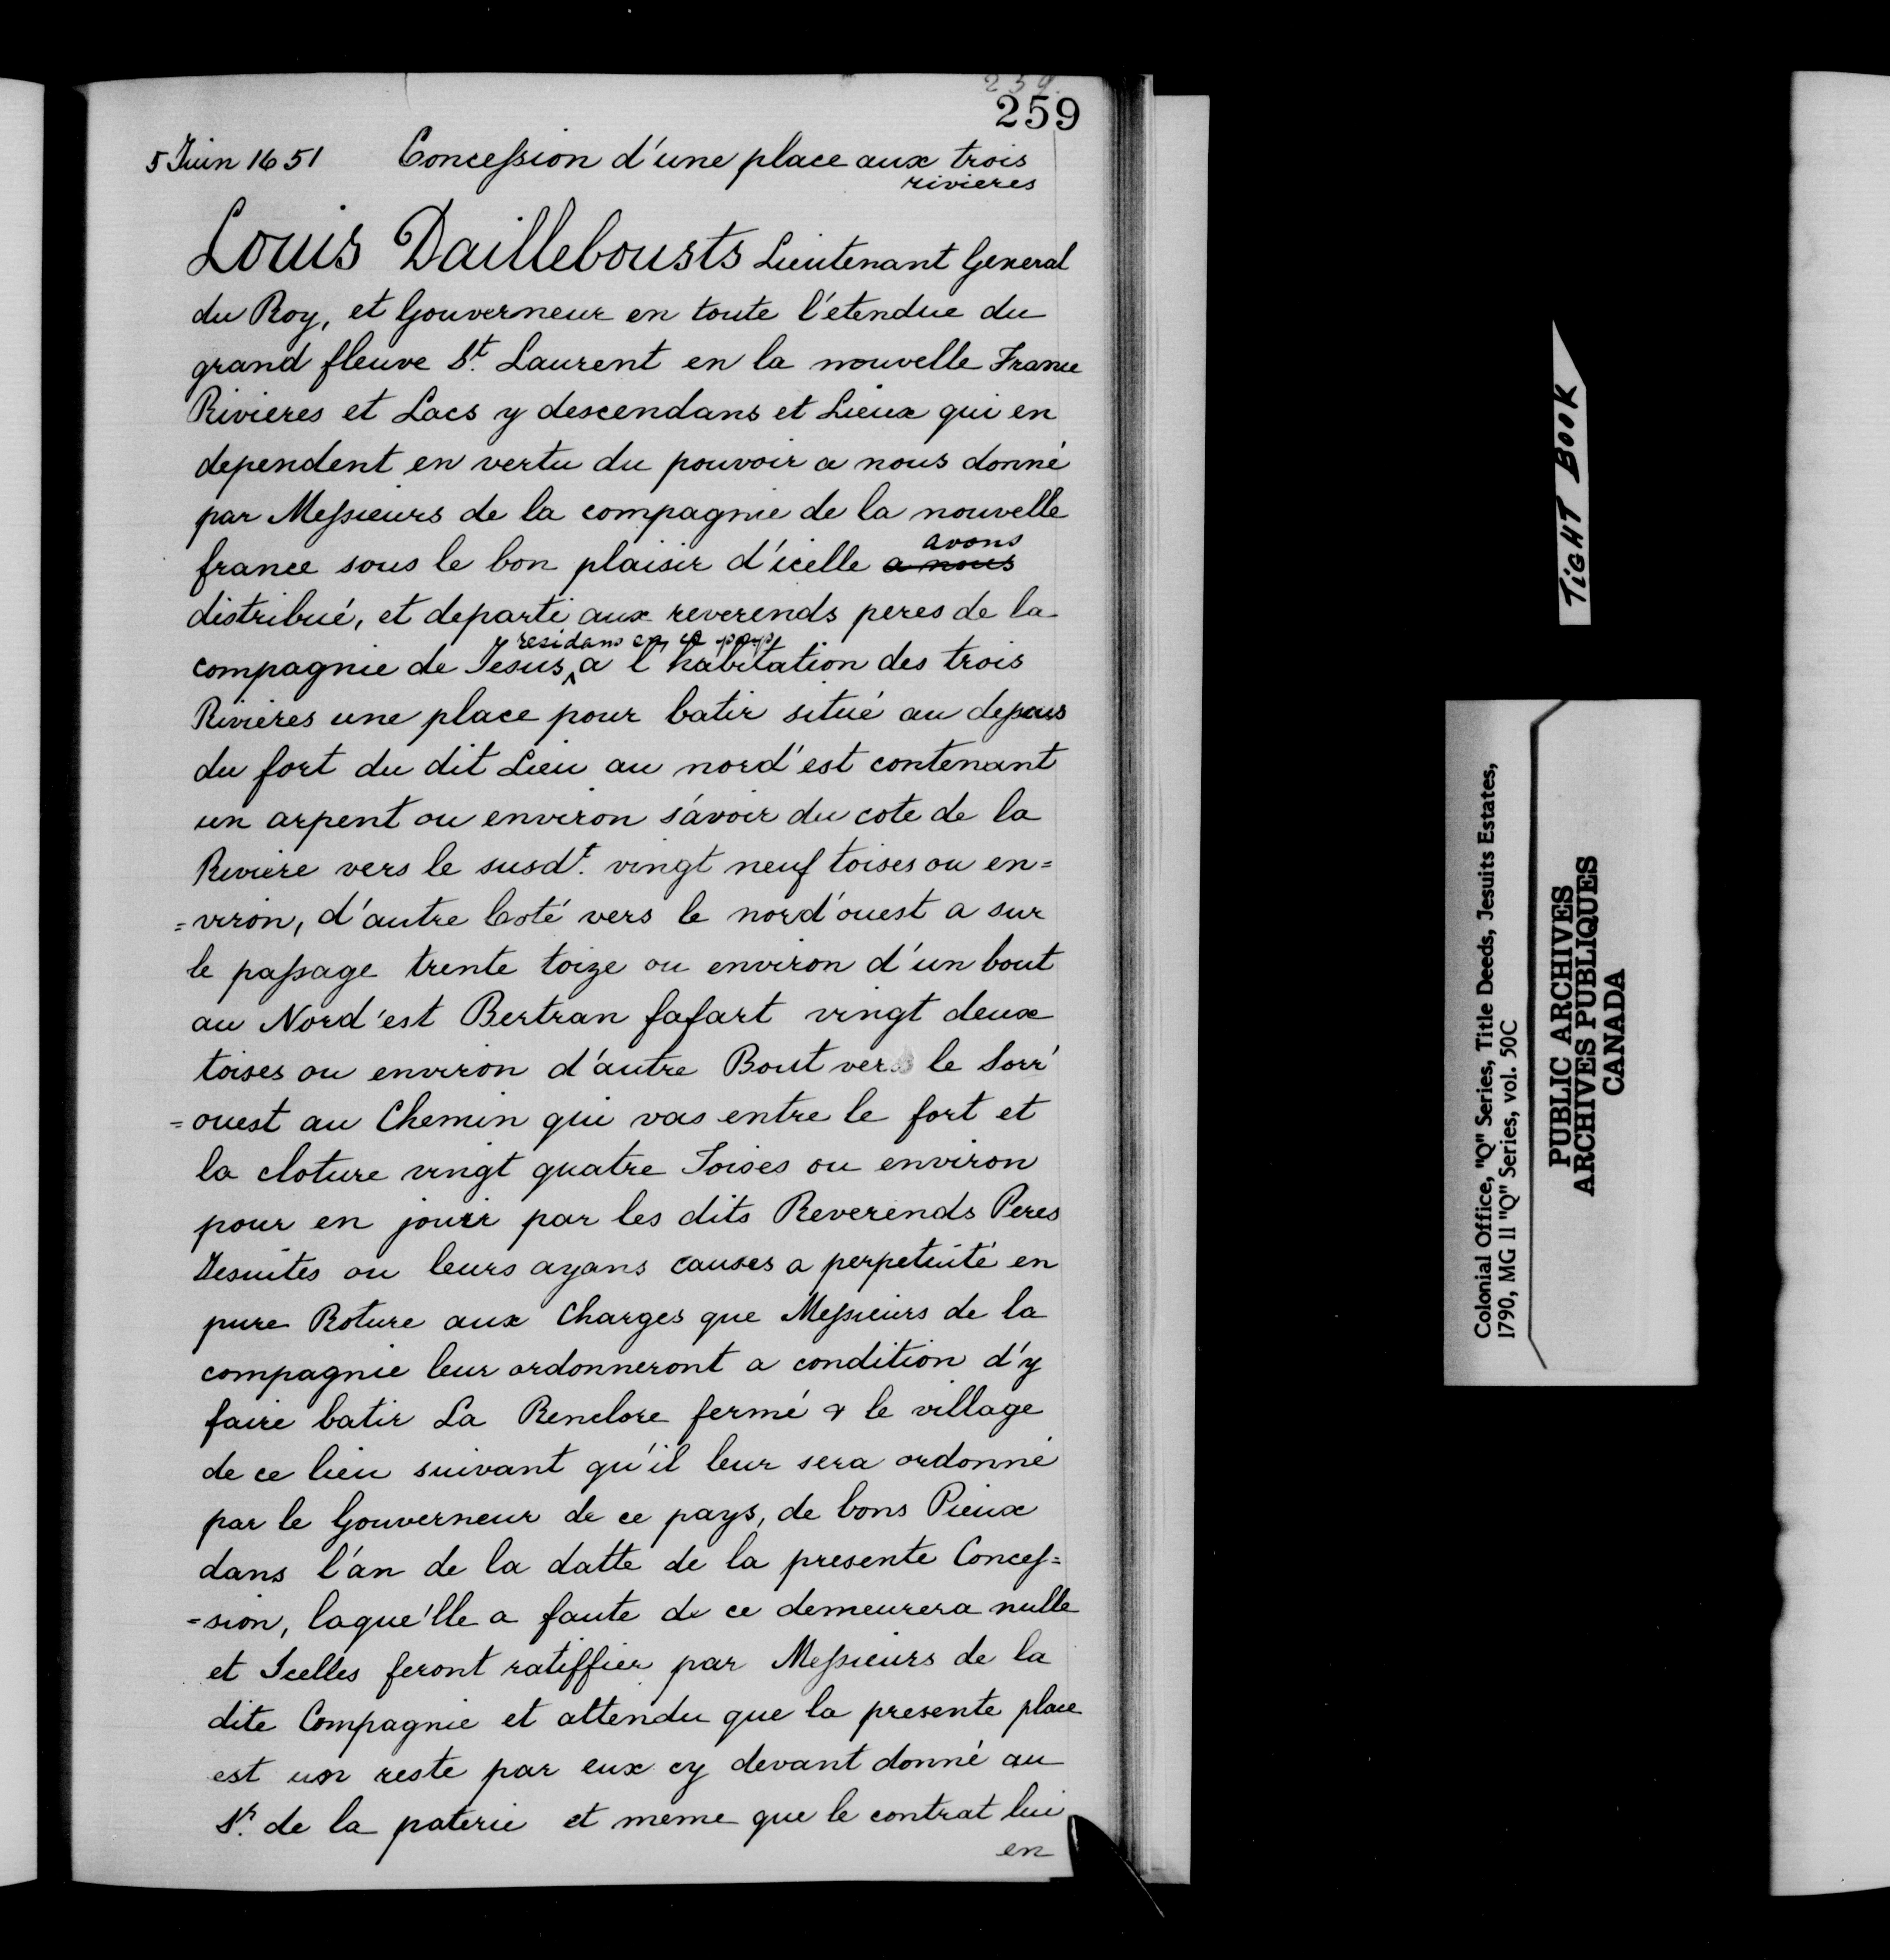 239.
259
5 Juin 1651 Concession d'une place aux trois
rivieres
Louis Daillebousts Lieutenant General
du Roy, et Gouverneur en toute l'etendue du
grand fleuve St. Laurent en la nouvelle France
Rivieres et Lacs y descendans et Lieux qui en
dependent en vertu du pouvoir a nous donné
par Messieurs de la compagnie de la nouvelle
avons
france sous le bon plaisir d'icelle a nous
distribué, et departi aux reverends peres de la
residans en ce pays
compagnie de Jesus, a l'habitation des trois
Rivieres une place pour batir situé au depaus
du fort du dit Lieu au nord'est contenant
un arpent ou environ s'avoir du cote de la
Riviere vers le susdt. vingt neuf toises ou en=
=viron, d'autre Coté vers le nord'ouest a sur
le passage trente toize ou environ d'un bout
au Nord'est Bertran fafart vingt deux
toises ou environ d'autre Bout vers le Sorr'
=ouest au Chemin qui vas entre le fort et
la cloture vingt quatre Toises ou environ
pour en jouir par les dits Reverends Peres
Jesuites ou leurs ayans causes a perpetuité en
pure Roture aux Charges que Messieurs de la
compagnie leur ordonneront a condition d'y
faire batir La Renclore fermé & le village
de ce lieu suivant qu'il leur sera ordonné
par le Gouverneur de ce pays, de bons Pieux
dans l'an de la datte de la presente Conces=
=sion, laque'lle a faute de ce demeurera nulle
et Icelles feront ratiffier par Messieurs de la
dite Compagnie et attendu que la presente place
est un reste par eux cy devant donné au
Sr. de la paterie et meme que le contrat lui
en
TIGHT BOOK
Colonial Office, "Q" Series, Title Deeds, Jesuits Estates,
1790, MG 11 "Q" Series, vol. 50C
PUBLIC ARCHIVES
ARCHIVES PUBLIQUES
CANADA